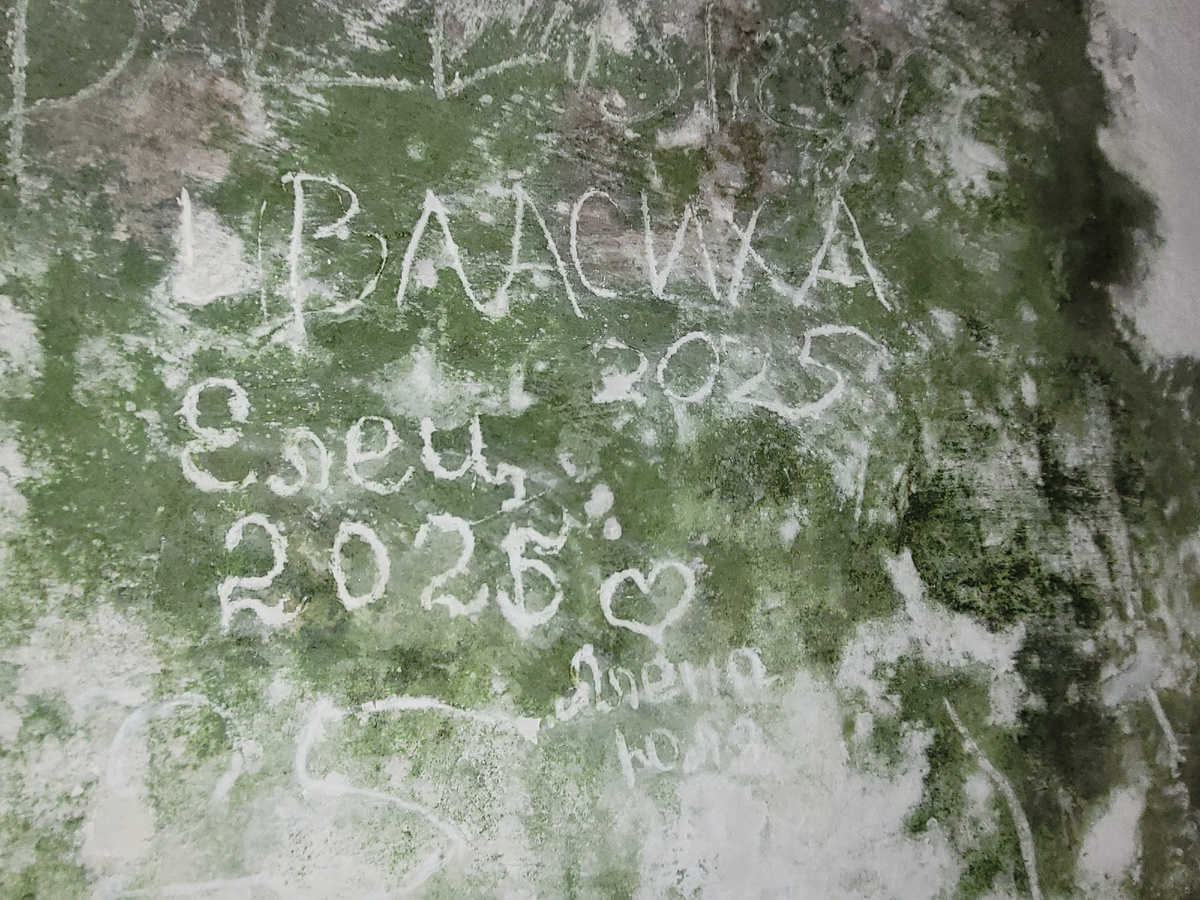 ВЛАСИХА
2025
Елец
2025
Алена
Юля